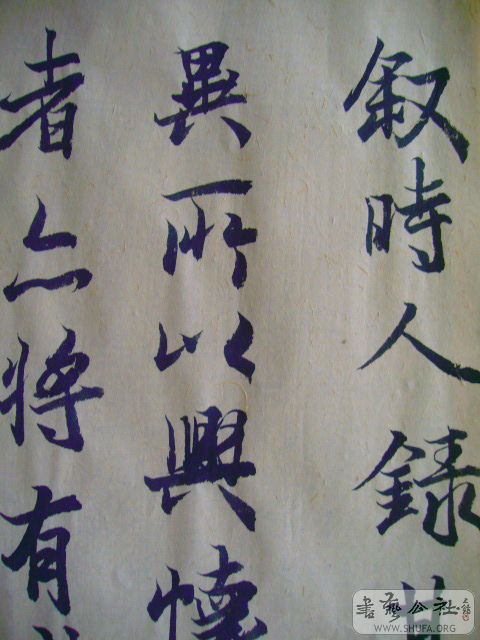 叙時人録
異所以興懐
者亦将有
書藝公社
WWW.SHUFA.ORG